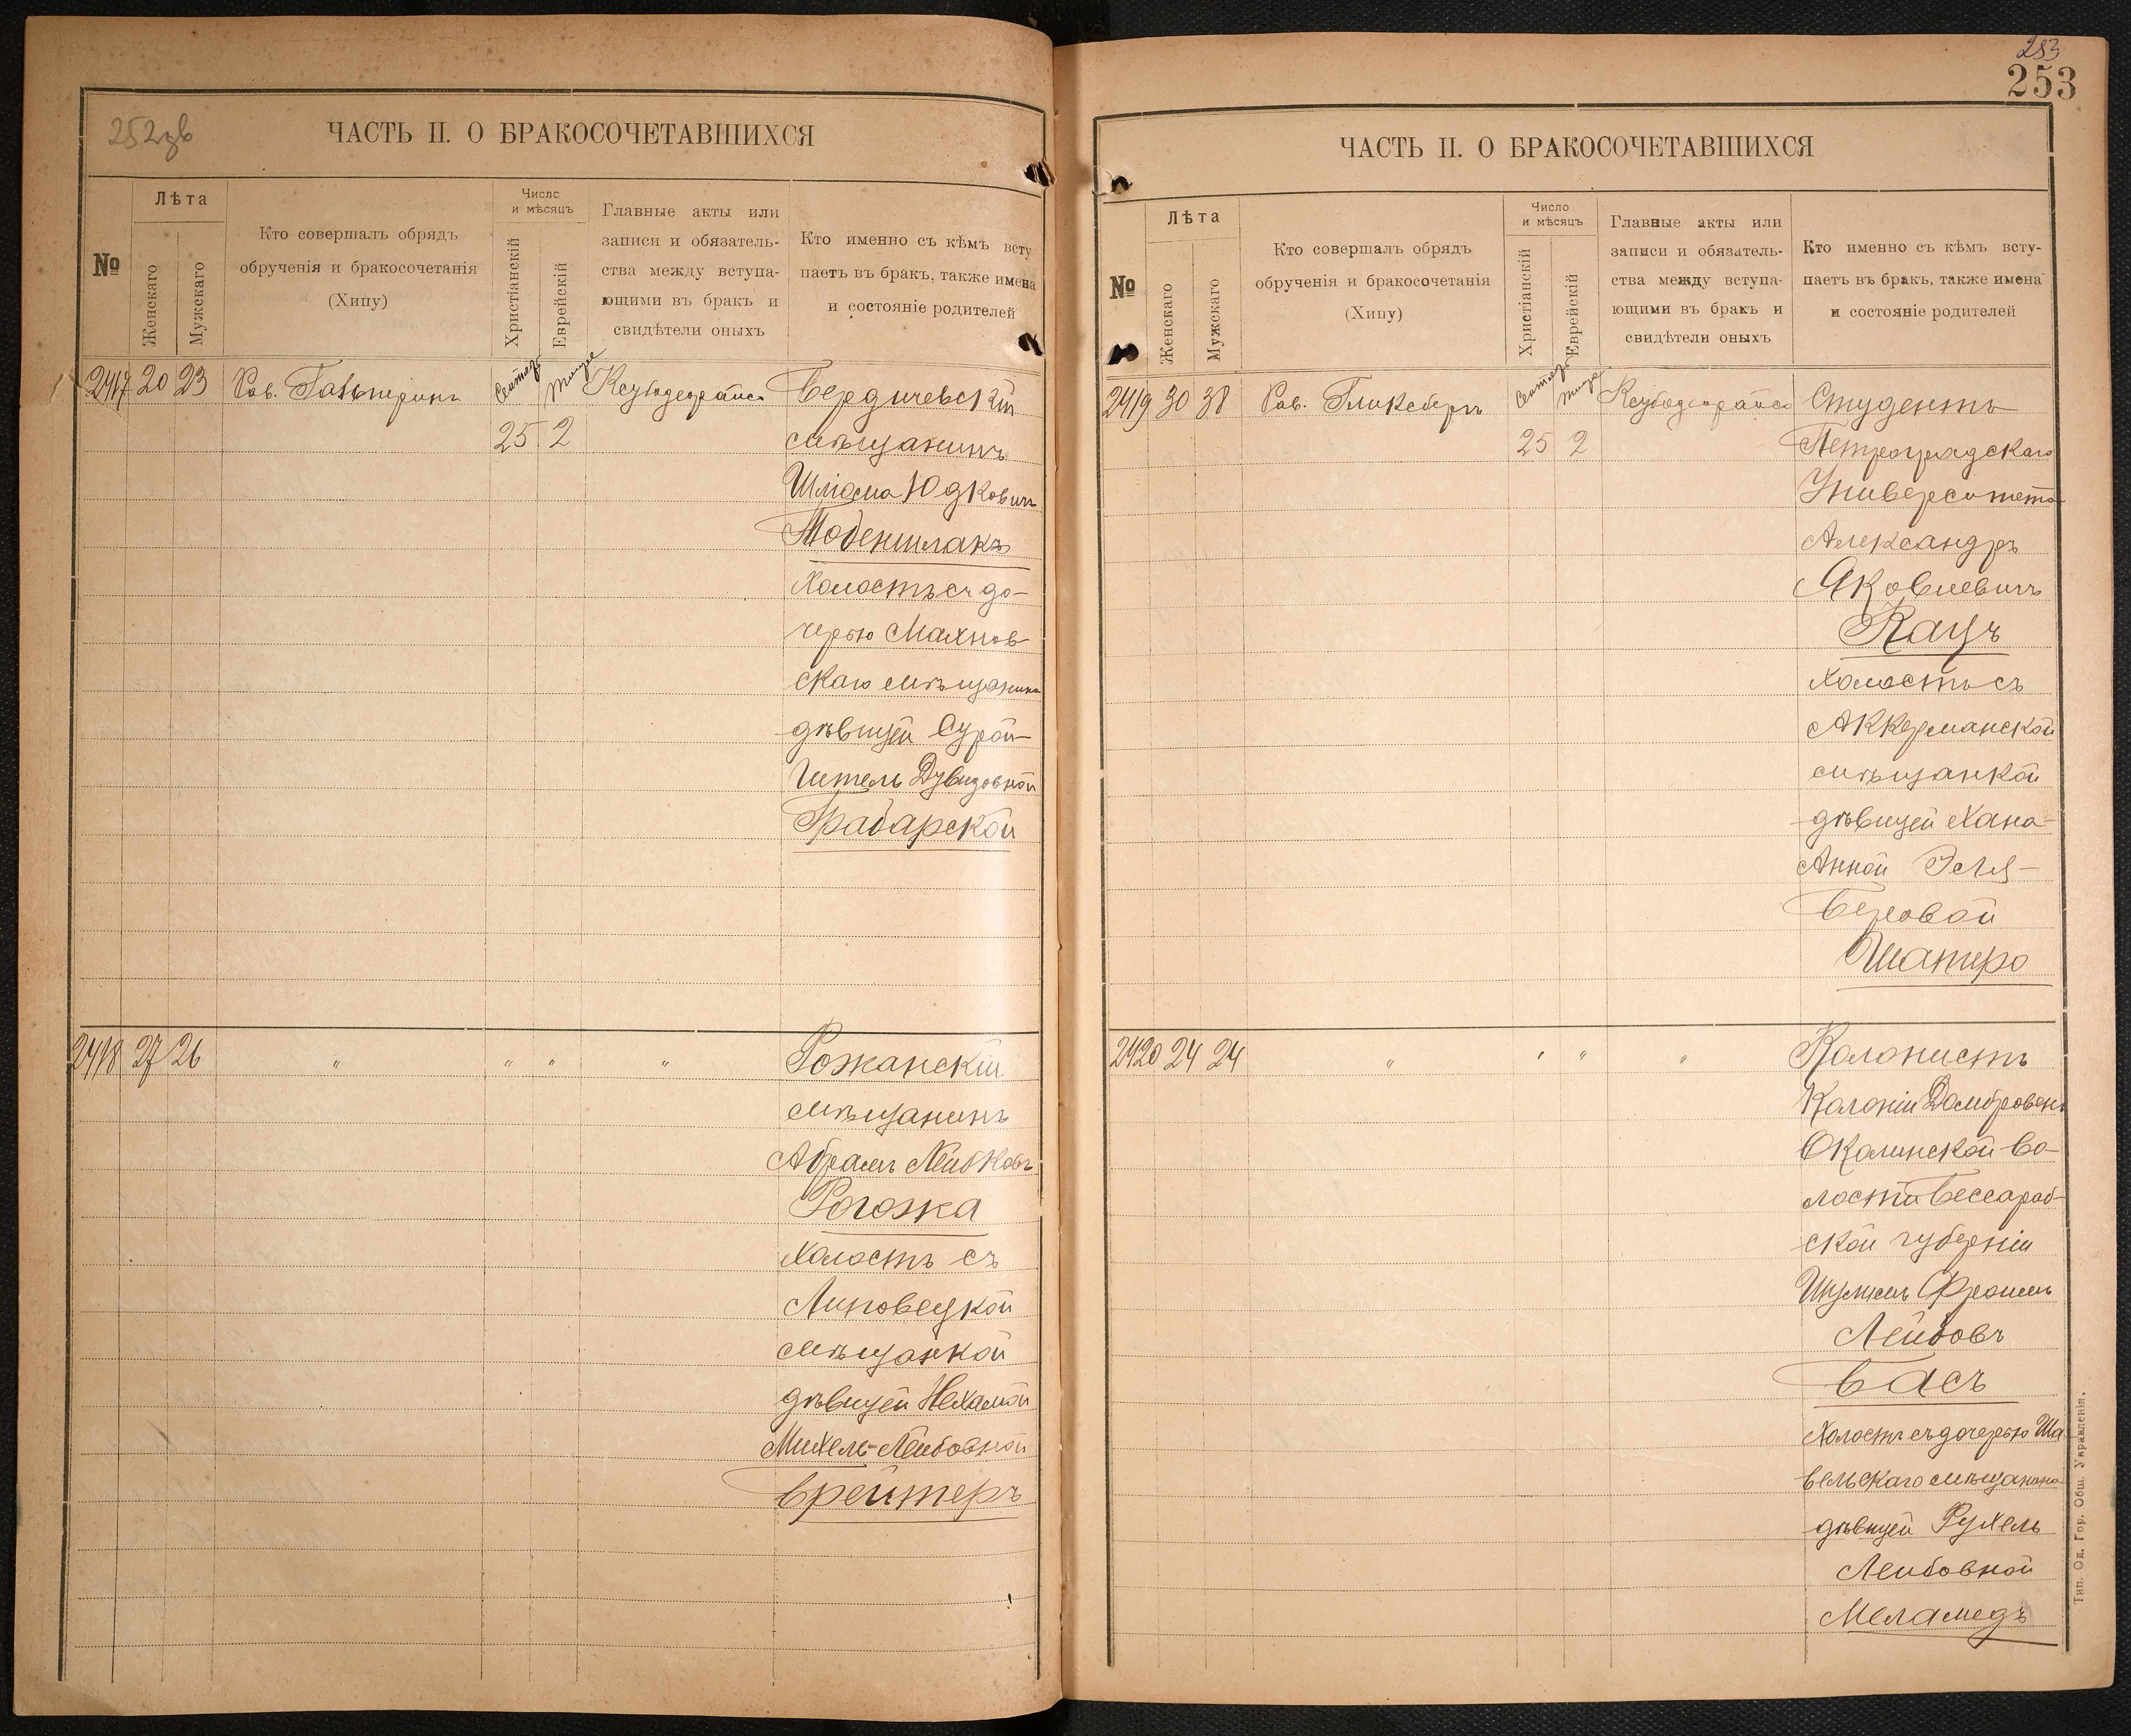 252зв
ЧАСТЬ II. О БРАКОСОЧЕТАВШИХСЯ
№
Лѣта
Женскаго
Мужскаго
Кто совершалъ обрядъ
обрученія и бракосочетанія
(Хипу)
Число
и мѣсяцъ
Христіанскій
Еврейскій
Главные акты или
записи и обязатель-
ства между вступа-
ющими въ бракъ и
свидѣтели оныхъ
Кто именно съ кѣмъ всту
паетъ въ бракъ, также имена
и состояніе родителей
2417 20 23 Рав. Гальперинъ Сентяб. Тишре Бердичевскій
25 2 мѣщанинъ
Шліома Юдковичъ
Тобеншлакъ
Холостъ съ до-
черью Махнов-
скаго мѣщанина
дѣвицей Сурой-
Гитель Дувидовной
Грабарской
2418 27 26 " " " " Рожанскій
мѣщанинъ
Абрамъ Лейбковъ
Рогожка
Холостъ съ
Липовецкой
мѣщанкой
дѣвицей Нехамой
Михель-Лейбовной
Брейтеръ
253
253
ЧАСТЬ II. О БРАКОСОЧЕТАВШИХСЯ
№
Лѣта
Женскаго
Мужскаго
Кто совершалъ обрядъ
обрученія и бракосочетанія
(Хипу)
Число
и мѣсяцъ
Христіанскій
Еврейскій
Главные акты или
записи и обязатель-
ства между вступа-
ющими въ бракъ и
свидѣтели оныхъ
Кто именно съ кѣмъ всту-
паетъ въ бракъ, также имена
и состояніе родителей
2419 30 38 Рав. Гликсбергъ Сентяб. Тишре Студентъ
25 2 Петроградскаго
Университета
Александръ
Яковлевичъ
Кацъ
холостъ съ
Аккерманской
мѣщанкой
дѣвицей Хана-
Анной Эеля-
Беровой
Шапиро
2420 24 24 " " " " Колонистъ
Колоніи Домбровены
Околинской во-
лости Бессараб-
ской губерніи
Шулимъ Фроимъ
Лейбовъ
Басъ
Холостъ съ дочерью Ша
вельскаго мѣщанина
дѣвицей Рухель
Лейбовной
Меламедъ
Тип. Од. Гор. Общ. Управленія.